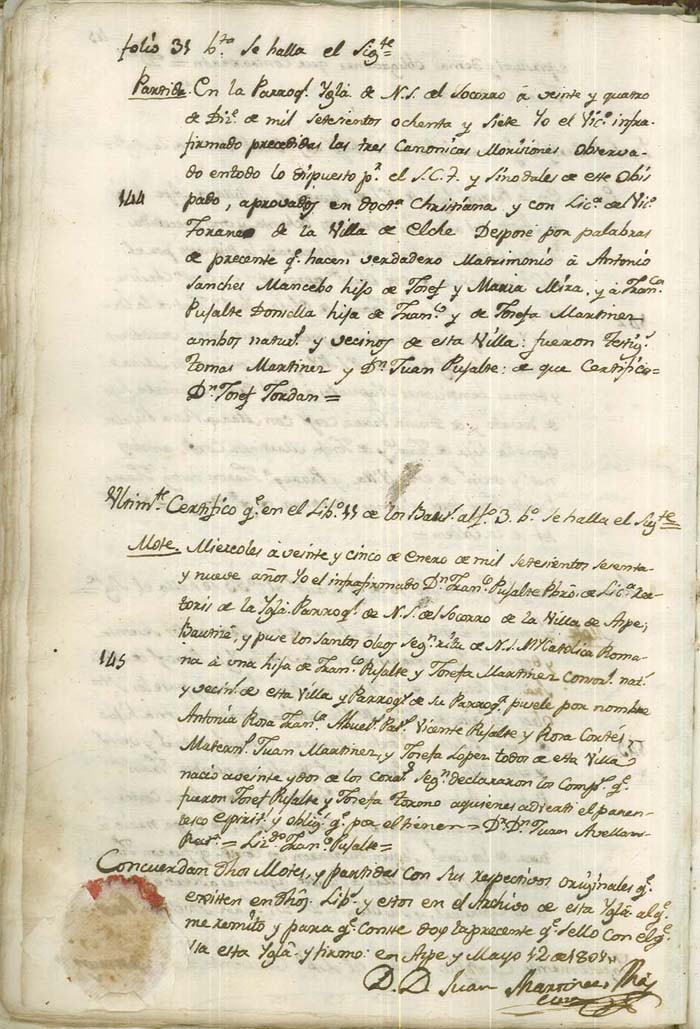 folio 31 b.to se halla el Sig.te
Partida. En la Parroq.l Ygla. de N.S. del Socorro â veinte y quatro
de Diz.e de mil setesientos ochenta y siete Yo el Vic.o infra-
firmado precedidas las tres Canonicas Monisiones observa-
do entodo lo dispuesto p.r el S.C.T. y sinodales de este Obis-
144
pado, aprovados en Doct.a Christiana y con Lic.a del Vic.o
Foraneo de la Villa de Elche Desposè por palabras
de precente q.e hacen verdadero Matrimonio â Antonio
Sanches Mancebo hijo de Josef y Maria Mira, y â Fran.ca
Pujalte Donsella hija de Fran.co y de Josefa Martinez
ambos natur.s y vecinos de esta Villa: fueron testig.s
Tomas Martinez y D.n Juan Pujalte: de que Certifico=
D.n Josef Jordan=
Ultim.te Certifico q.e en el Lib.o 11 de los Baut.s al f.o 3. b.o se halla el Sig.te
Mote. Miercoles â veinte y cinco de Enero de mil setesientos sesenta
y nueve años Yo el infrafirmado D.n Fran.co Pujalte Pbro. de Lic.a Rec-
toris de la Ygla. Parroq.l de N.S. del Socorro de la Villa de Aspe,
Bautisè, y puse los santos oleos seg.n ritu de N.S. M.e Catolica Roma-
145
na â una hija de Fran.co Pujalte y Josefa Martinez consor.s nat.s
y vecin.s de esta Villa y Parroq.s de su Parroq.a pusele por nombre
Antonia Rosa Fran.ca Abuel.s Pat.s Vicente Pujalte y Rosa Cortés
Matern.s Juan Martinez, y Josefa Lopez todos de esta Villa
naciò aveinte y dos de los corr.tes seg.n declararon los Comp.s q.e
fueron Josef Pujalte y Josefa aquienes adverti el paren-
tesco espirit.l y oblig.n q.e por el tienen = D.r D.n Juan Avellan
Rect.r = Lic.do Fran.co Pujalte=
Concuerdan dhos Motes, y partidas con sus respectivos originales q.e
existen en dhos. Lib.s y estos en el Archivo de esta Ygla. al q.e
me remito, y para q.e conste doy la precente q.e sello con el q.e
usa esta Ygla. y firmo: en Aspe y Mayo 12 de 1801
D. D. Juan Martinez
Cura